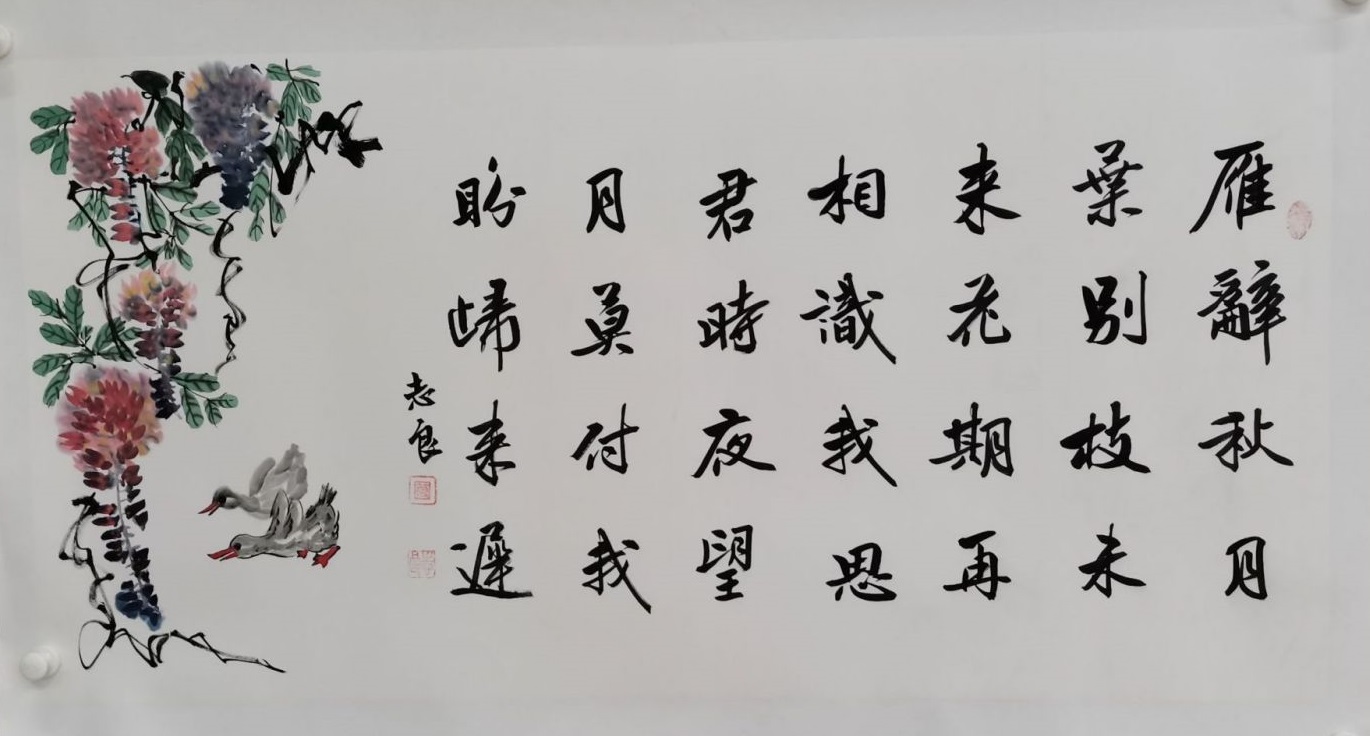 雁辭秋月
葉別枝未
来花期再
相識我思
君時夜望
月莫付我
盼歸来遲
志良